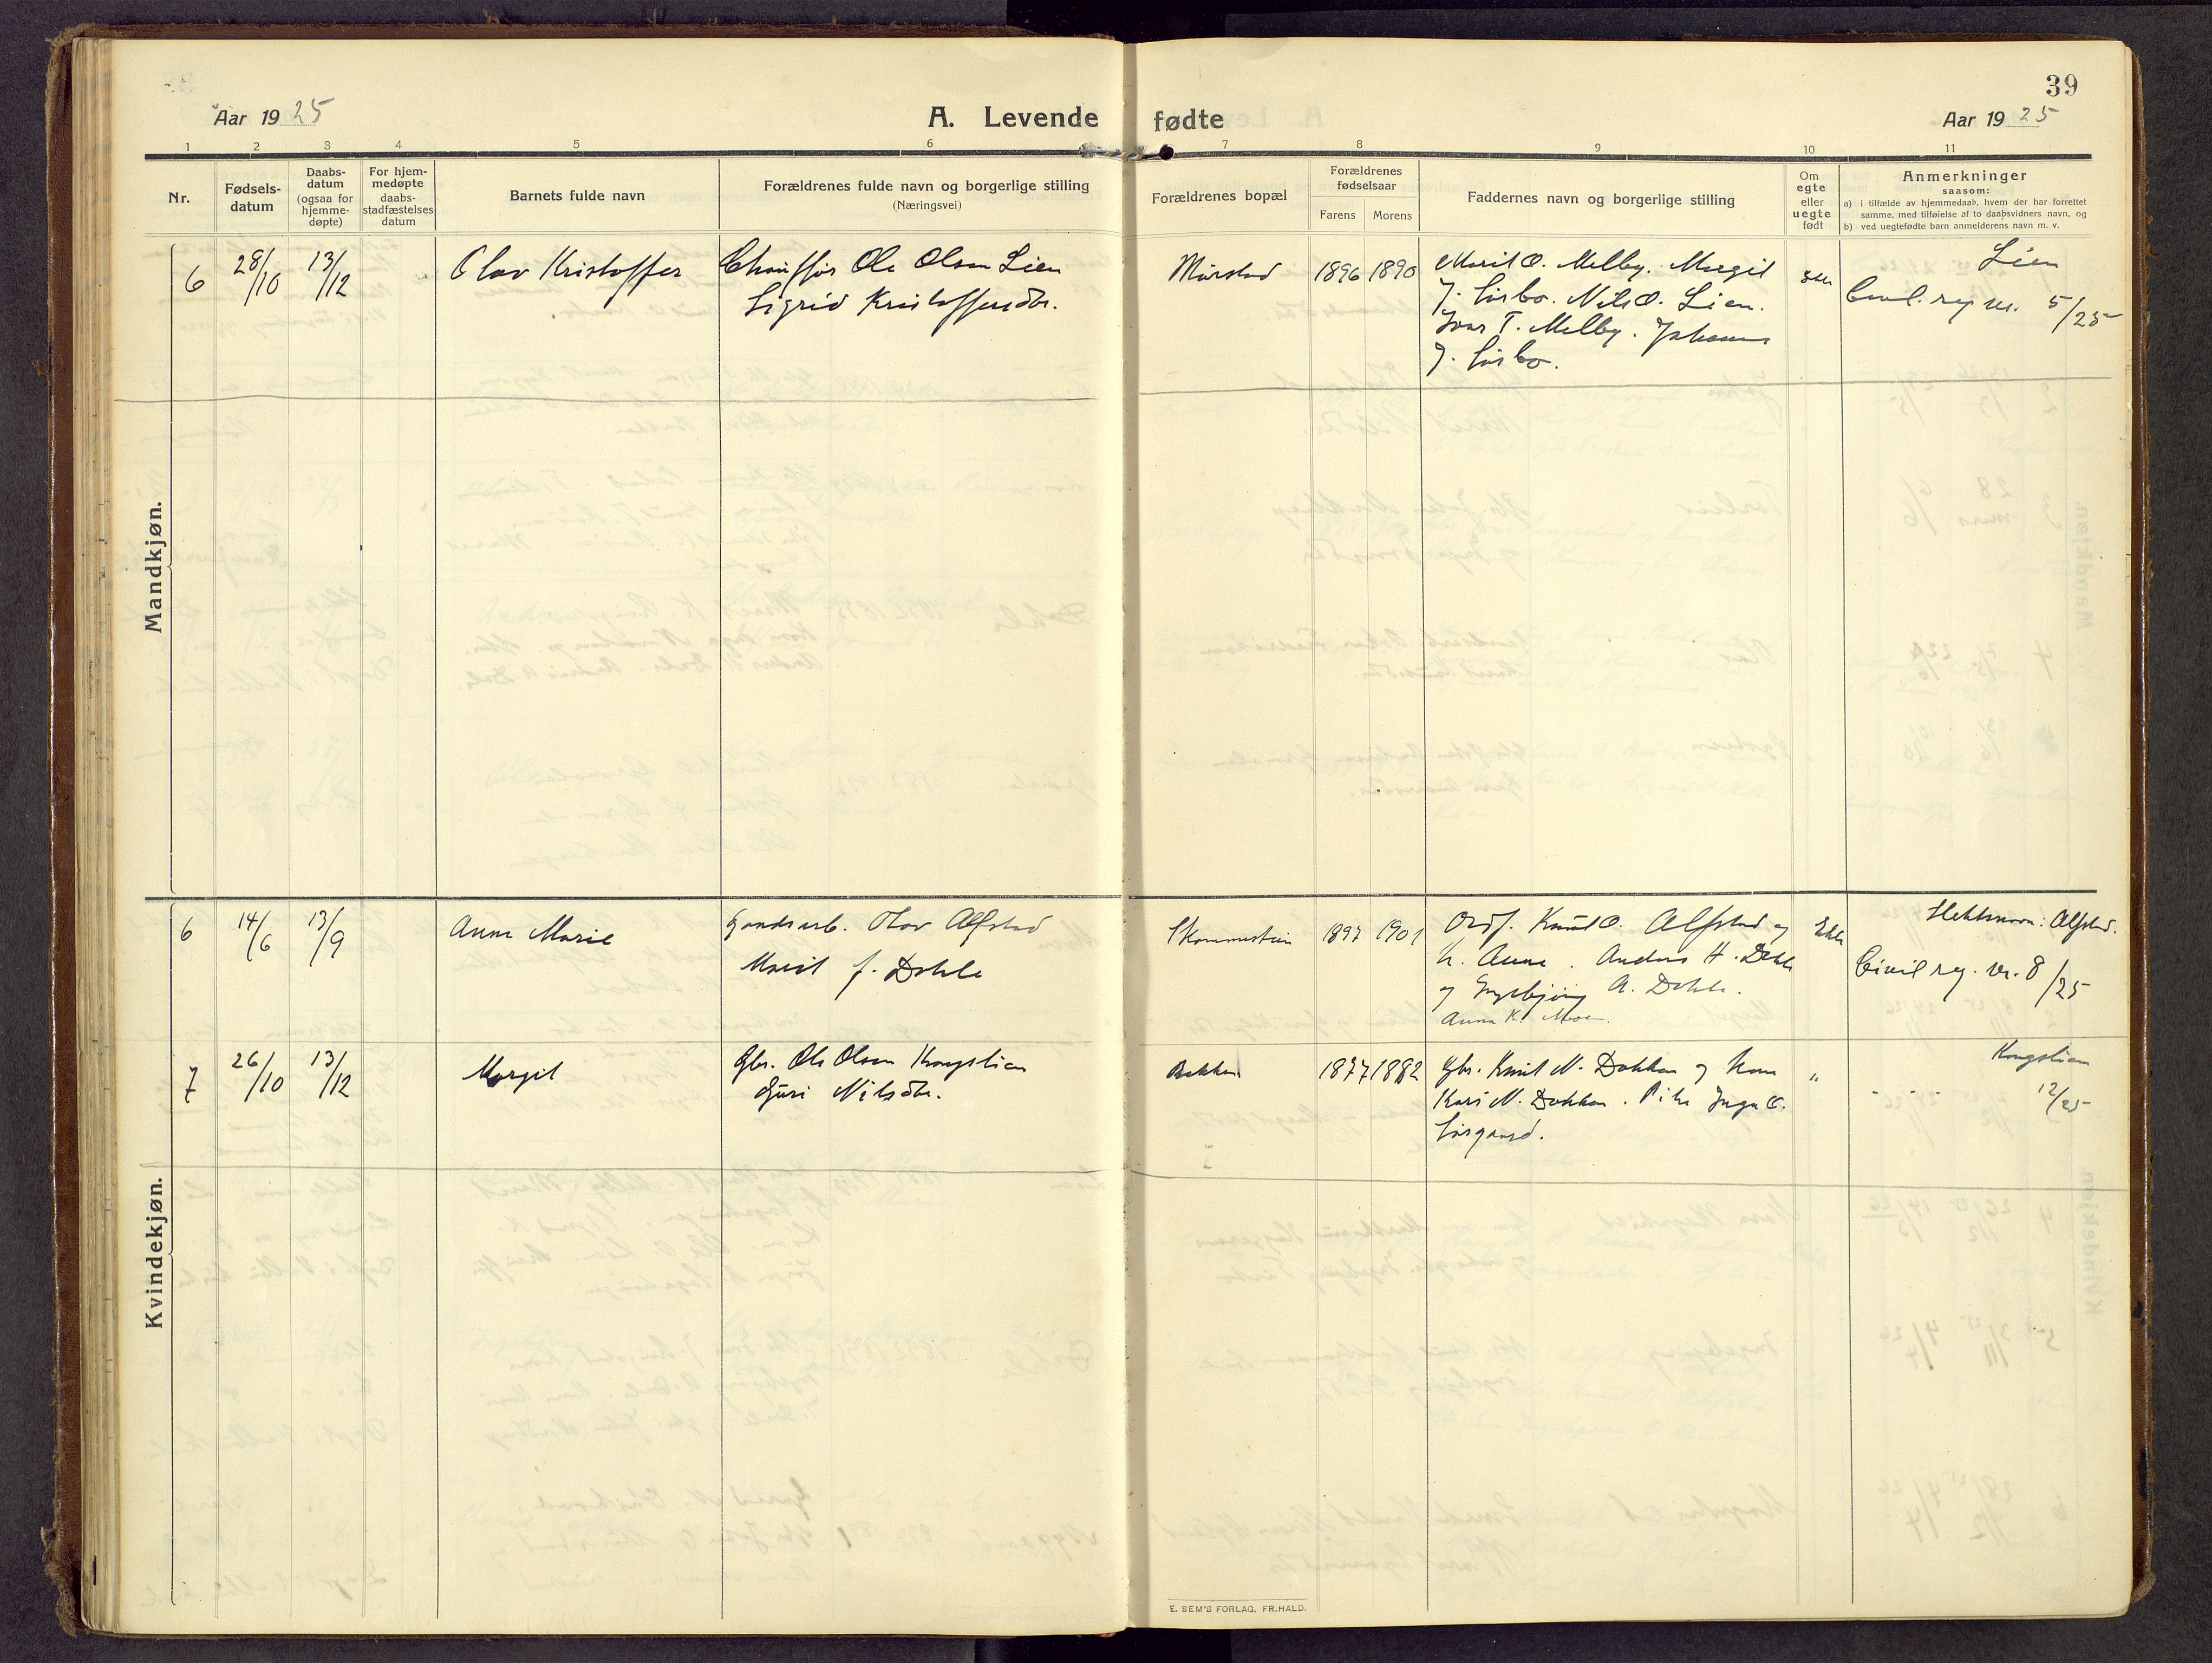 39
Aar 1925
A. Levende fødte
Aar 1925
1 2 3 4 5 6 7 8 9 10 11
Nr.
Fødsels-
datum
Daabs-
datum
(ogsaa for
hjemme-
døpte)
For hjem-
medøpte
daabs-
stadfæstelses
datum
Barnets fulde navn
Forældrenes fulde navn og borgerlige stilling
(Næringsvei)
Forældrenes bopæl
Forældrenes
fødselsaar
Farens Morens
Faddernes navn og borgerlige stilling
Om
egte
eller
uegte
født
Anmerkninger
saasom:
a) i tilfælde av hjemmedaab, hvem der har forrettet
samme, med tilføielse af to daabsvidners navn, og
b) ved uegtefødte barn anmelderens navn m. v.
Mandkjøn.
6
28/10
13/12
Olav Kristoffer
Chauffør Ole Olsen Lien
Sigrid Kristoffersdtr.
Mørstad
1896 1890
Marit O. Melby. Margit
J. Sørbo. Nils O. Lien.
Ivar T. Melby. Johannes
J. Sørbo.
Lien
reg nr. 5/25
Kvindekjøn.
6
14/6
13/9
Anna Marie
Gaardsarb. Olav Alfstad
Marit f. Dokle
1897 1901
Ordf. Knut O. Alfstad og
h. Anne. Anders H.
og Ingebjørg A.
Anna K. Moen.
Ekte
Slektsnavn: Alfstad.
Civil reg. nr. 8/25
7
26/10
13/12
Margit
Gbr. Ole Olsen Kongslien
Guri Nilsdtr.
Bakken
1877 1882
Gbr. Knut N. Dokken og kone
Kari N. Dokken. Pike Inga O.
Sørgaard.
"
Kongslien
" " "
12/25
E. SEM'S FORLAG, FR.HALD.